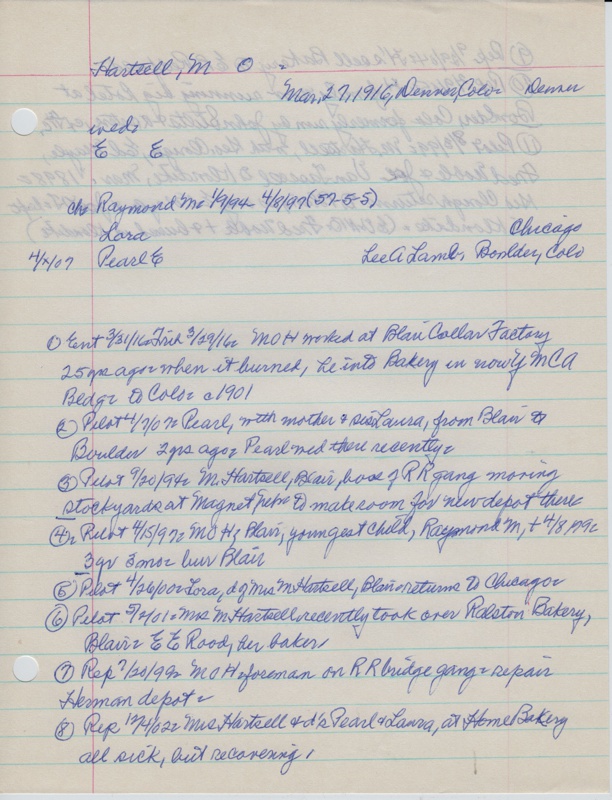 Hartsell, M O
Mar, 27, 1916, Denver, Colo Denver
wed:
E E
ch: Raymond M: 1/7/94 4/8/97 (57-5-5)
Lora Chicago
4/x/07 Pearl E Lee A Lamb, Boulder, Colo
① Ent 3/31/16: Trib 3/29/16: M O H worked at Blair Collar Factory
25 yrs ago: when it burned, he into Bakery in now Y M C A
Bldg: to Colo: c1901
② Pilot 4/7/07: Pearl, with mother & sis Laura, from Blair to
Boulder 2 yrs ago: Pearl wed there recently:
③ Pilot 9/20/94: M. Hartsell, Blair, boss of RR gang moving
stockyards at Magnet to make room for new depot there
④ Pilot 4/15/97: M O H, Blair, youngest child, Raymond M, + 4/8
3 yr 3 mo: bur Blair
⑤ Pilot 4/26/00: Lora, d of Mrs M Hartsell, Blair: returns to Chicago:
⑥ Pilot 5/2/01: Mrs M Hartsell recently took over Ralston Bakery,
Blair: E E Rood, her baker,
⑦ Rep 7/20/99: M O H: foreman on RR bridge gang: repair
Herman depot:
⑧ Rep 12/4/02: Mrs Hartsell & d's Pearl & Laura, at Home Bakery
all sick, but recovering,